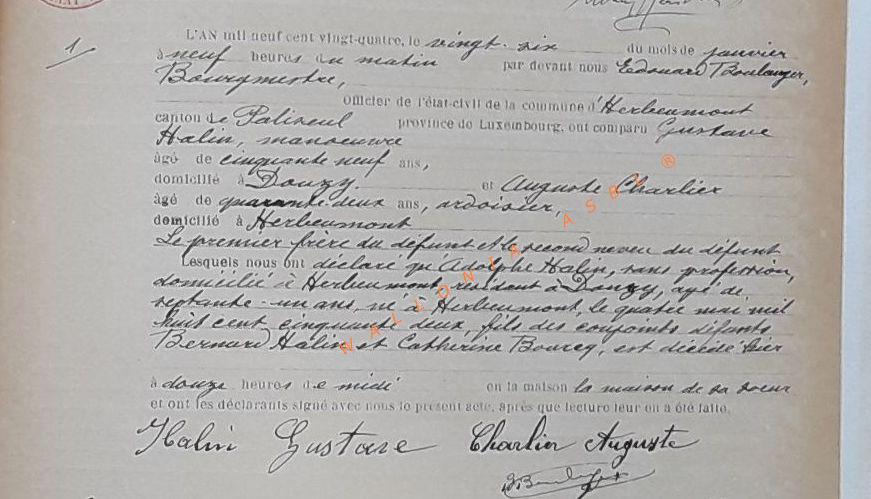 1/
L'AN mil neuf cent vingt-quatre, le vingt-six du mois de janvier
à neuf heures du matin par devant nous Edouard Boulanger,
Bourgmestre,
Officier de l'état-civil de la commune d'Herbeumont
canton de Paliseul province de Luxembourg, ont comparu Gustave
Halin, manoeuvre
âgé de cinquante neuf ans,
domicilié à Douzy. et Auguste Charlier
âgé de quarante-deux ans, ardoisier,
domicilié à Herbeumont
Le premier frère du défunt et le second neveu du défunt
Lesquels nous ont déclaré qu'Adolphe Halin, sans profession,
domicilié à Herbeumont, résidant à Douzy, âgé de
septante-un ans, né à Herbeumont, le quatre mai mil
huit cent cinquante deux, fils des conjoints défunts
Bernard Halin et Catherine Bourcq, est décédé hier
à douze heures de midi en la maison la maison de sa soeur
et ont les déclarants signé avec nous le présent acte, après que lecture leur en a été faite.
Halin Gustave Charlier Auguste
WALLONIA ASBL ®